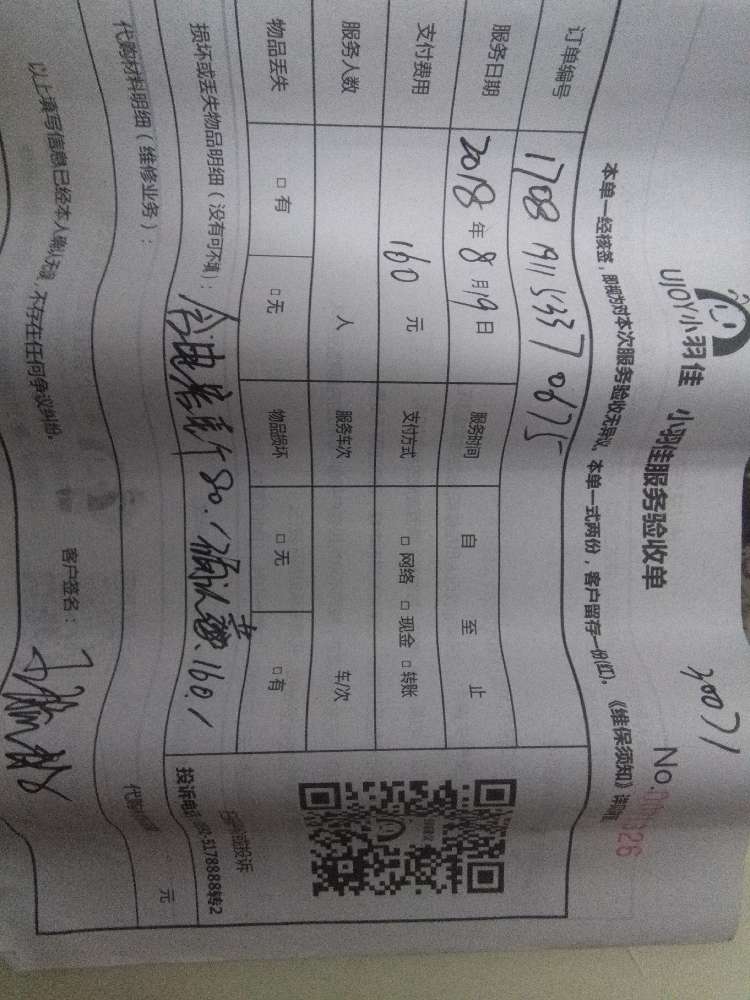 30071
UJOY小羽佳 小羽佳服务验收单
No.
本单一经核签，即视为对本次服务验收无异议。本单一式两份，客户留存一份(红)。《维保须知》
订单编号 1708191153370675
服务日期 2018年8月19日 服务时间 自 至 止
支付费用 160元 支付方式 □网络 □现金 □转账
服务人数 人 服务车次 车/次
物品丢失 □有 □无 物品损坏 □无 □有
损坏或丢失物品明细（没有可不填）：
代购材料明细（维修业务）： 元
以上填写信息已经本人确认无误，不存在任何争议纠纷。 客户签名：
投诉
投诉电 5178888转2